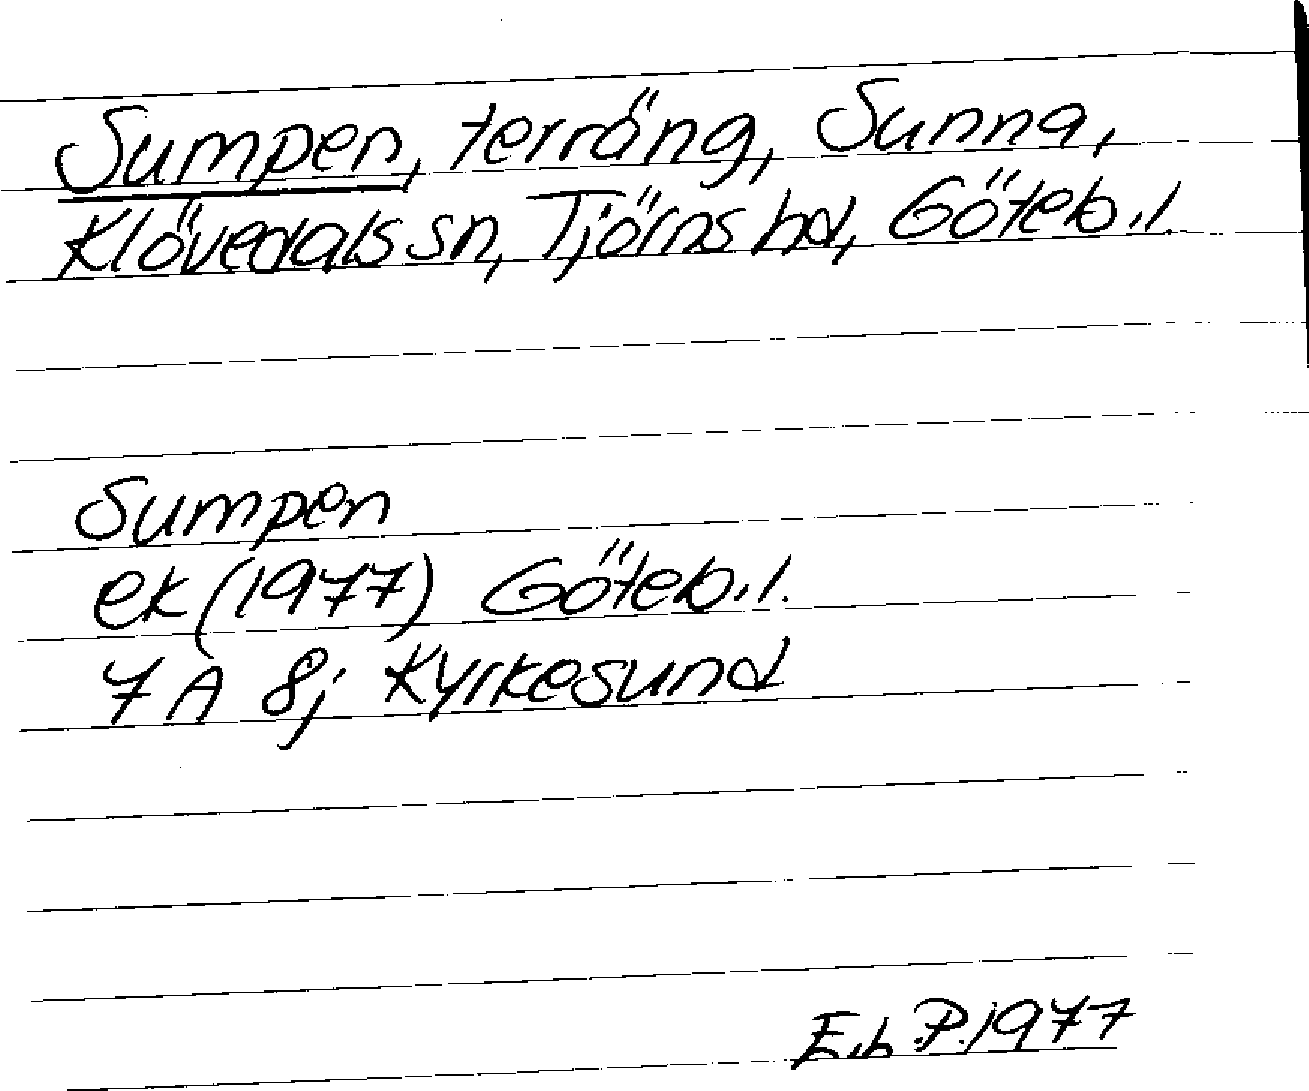 Sumpen, terräng, Sunna,
Klövedals sn, Tjörns hd, Göteb.l.
Sumpen
ek (1977) Göteb.l.
7A 8j Kyrkesund
E.b. P. 1977